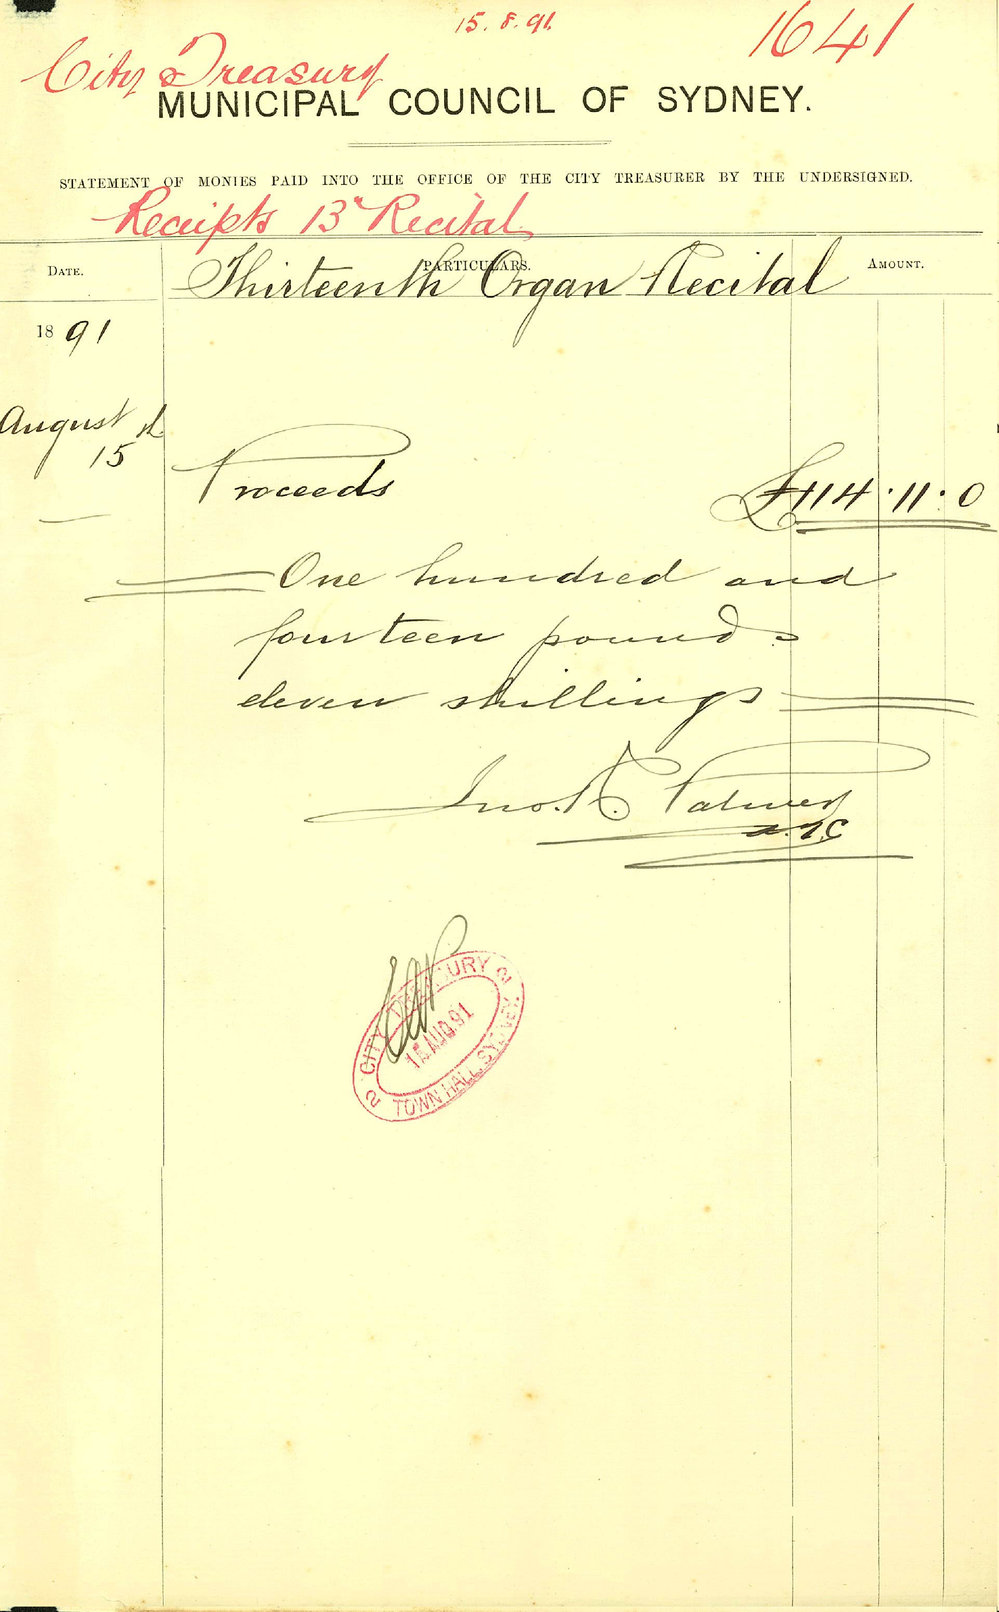 15. 8. 91.
1641
City Treasury
MUNICIPAL COUNCIL OF SYDNEY.
STATEMENT OF MONIES PAID INTO THE OFFICE OF THE CITY TREASURER BY THE UNDERSIGNED.
Receipts 13th Recital
DATE. PARTICULARS. AMOUNT.
Thirteenth Organ Recital
1891
August
15th
Proceeds £114.11.0
One hundred and
fourteen pounds
eleven shillings
Jno. R. Palmer
CITY TREASURY
15 AUG 91
TOWN HALL, SYDNEY.